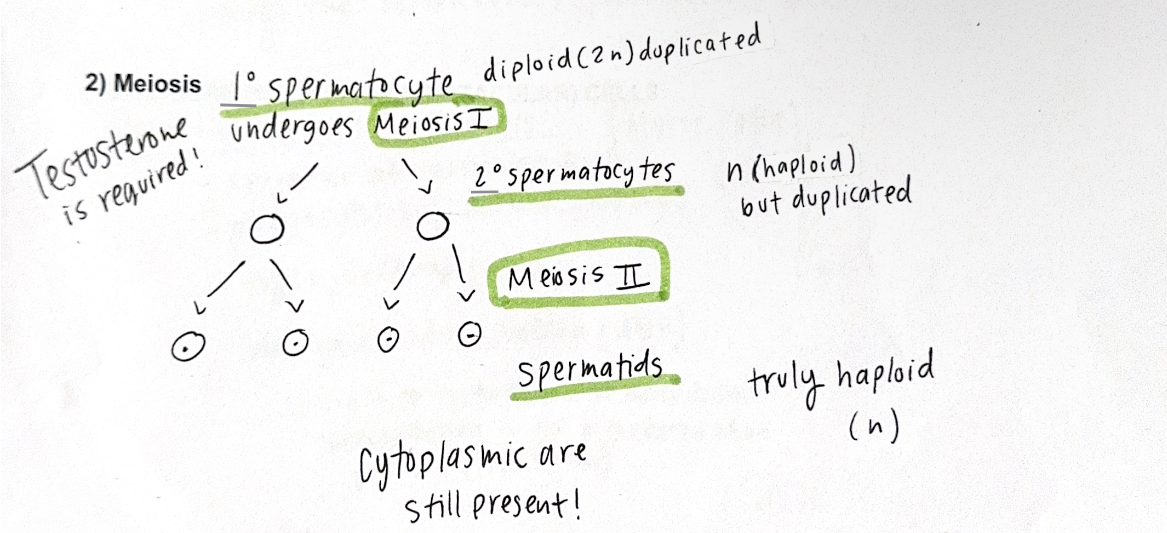 2) Meiosis 1° spermatocyte diploid (2n) duplicated
undergoes Meiosis I
Testosterone
is required!
2° spermatocytes n (haploid)
but duplicated
Meiosis II
spermatids truly haploid
(n)
Cytoplasmic are
still present!